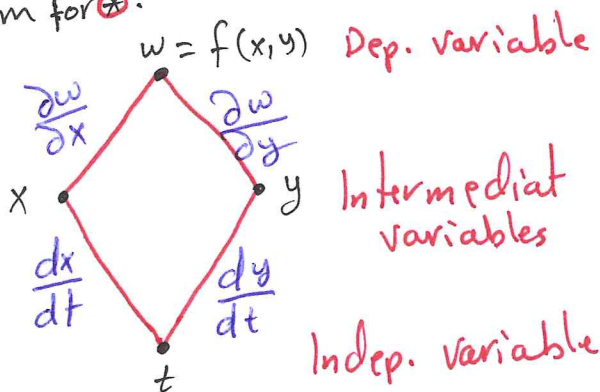 m for *.
w = f(x,y) Dep. variable
∂w/∂x ∂w/∂y
x y Intermediat
variables
dx/dt dy/dt
Indep. variable
t